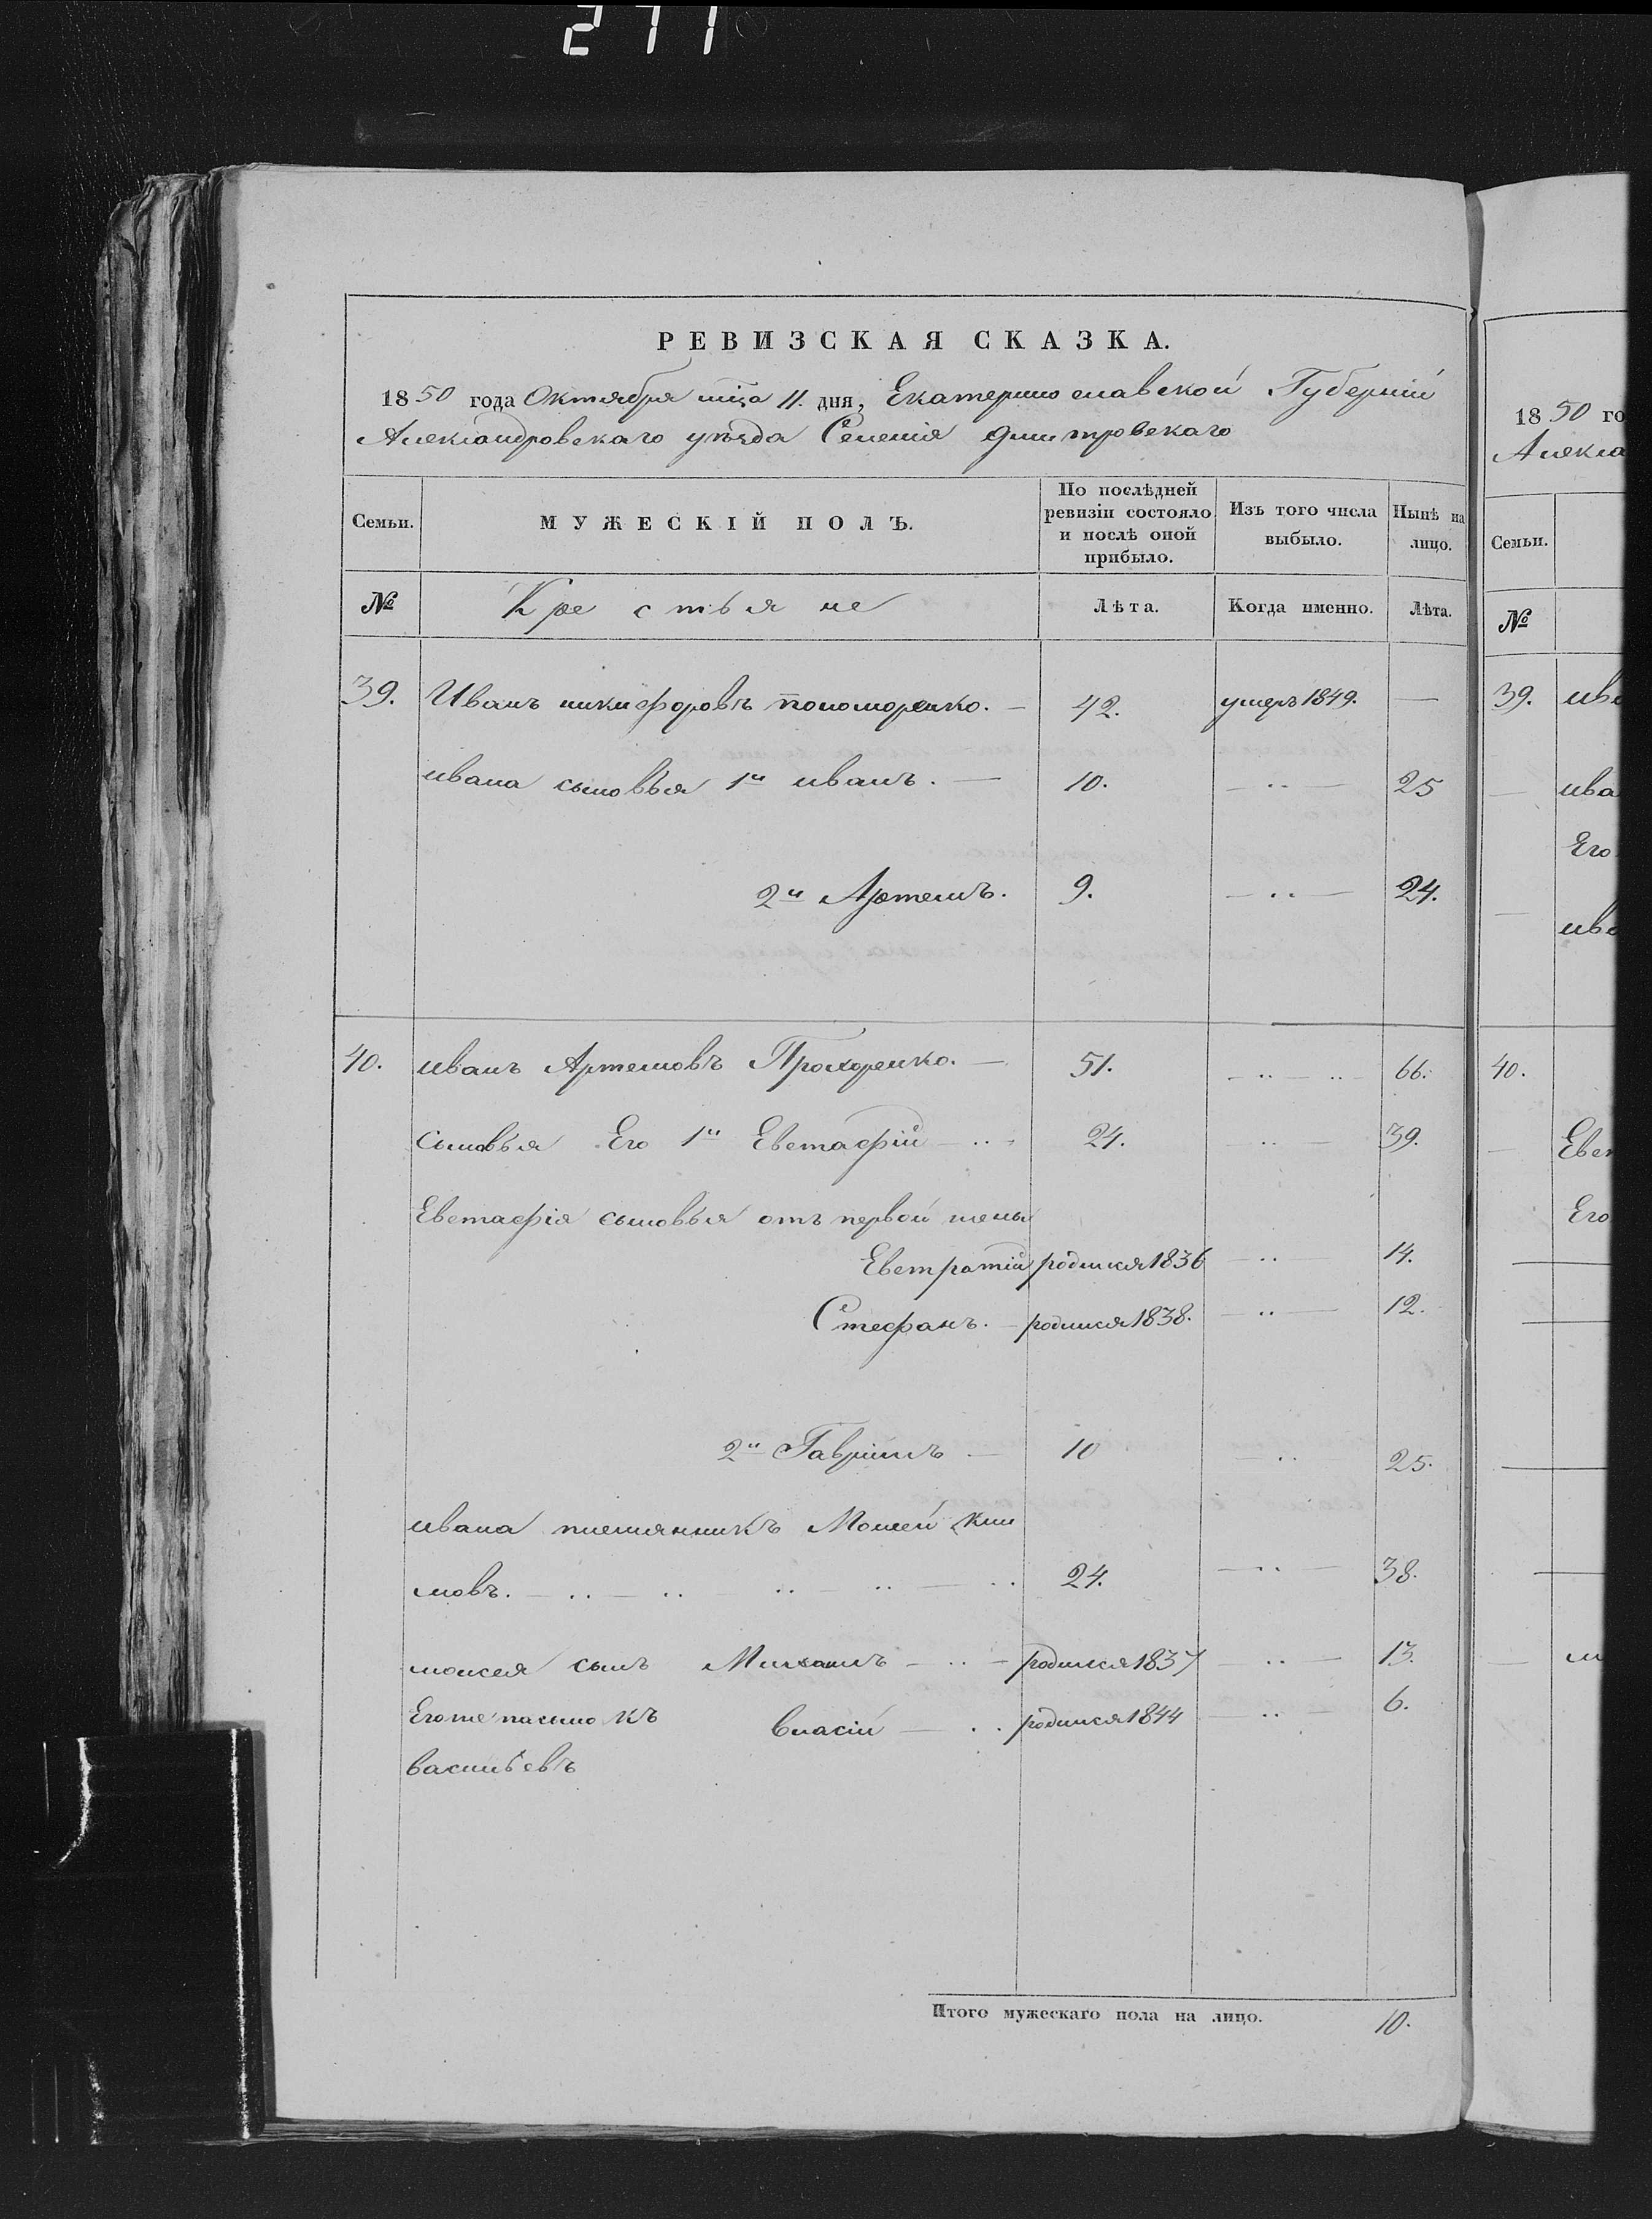 277
РЕВИЗСКАЯ СКАЗКА.
1850 года Октября мца 11. дня, Екатеринославской Губерніи
Александровскаго уѣзда Селенія Дмитровскаго
Семьи. МУЖЕСКІЙ ПОЛЪ. По послѣдней ревизіи состояло и послѣ оной прибыло. Изъ того числа выбыло. Нынѣ на лицо.
№ Крестьяне Лѣта. Когда именно. Лѣта.
39. Иванъ никифоровъ пономоренко. — 42. умеръ 1849. —
ивана сыновья 1й иванъ. — 10. — ·· — 25
2й Артемъ. 9. — ·· — 24.
40. иванъ Артемовъ Прохоренко. — 51. — ·· — ·· 66.
сыновья Его 1й Евстафій — ·· 24. ·· — 39.
Евстафія сыновья отъ первой жены
Евстратій родился 1836 — ·· 14.
Стефанъ. — родился 1838. — ·· — 12.
2й Гаврiилъ — 10 — ·· 25.
ивана племянникъ Моисей
мовъ. — ·· — ·· — ·· — ·· — ·· 24. — ·· — 38.
моисея сынъ Михаилъ — ·· — родился 1837 ·· — 13.
Егоже пасынокъ власій — ·· родился 1844 — ·· — 6.
васильевъ
Итого мужескаго пола на лицо. 10.
1850 го
Алекса
Семьи.
№
39. ива
ива
Его
ива
40.
Евст
Его
м